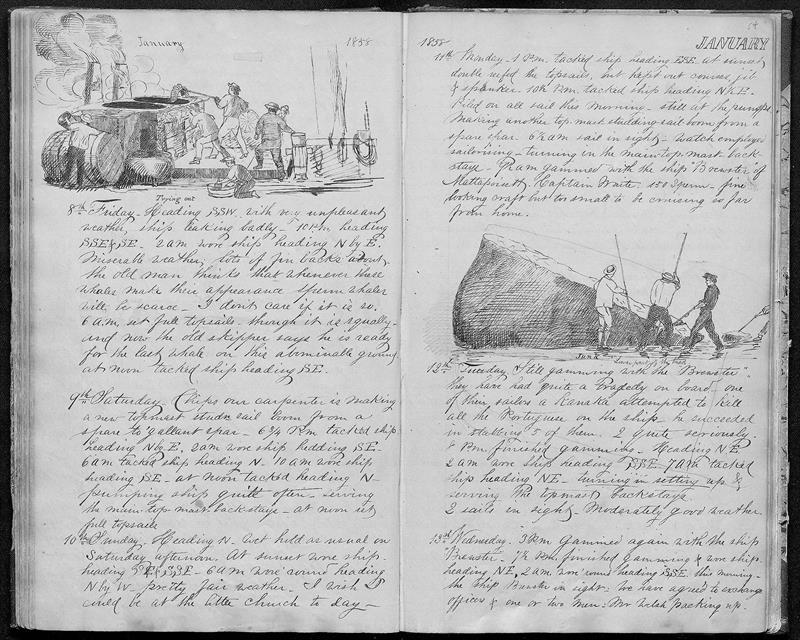 January 1858
Trying out
8th Friday. Heading SSW. with very unpleasant
weather, ship leaking badly - 10 P.m heading
SSE & SE. 2 am wore ship heading N by E.
Miserable weather, lots of fin backs about,
the old man thinks that whenever these
whales make their appearance sperm whales
will be scarce - I dont care if it is so.
6 a.m. set full topsails, though it is squally
and now the old skipper says he is ready
for the last whale on this abominable ground
at noon tacked ship heading SE.
9th Saturday. Chips our carpenter is making
a new topmast studn sail boom from a
spare to'gallant spar - 6 3/4 P.m tacked ship
heading N by E, 2 am wore ship heading SE -
6 am tacked ship heading N - 10 am wore ship
heading SE - at noon tacked heading N -
pumping ship quite often - serving
the main-top-mast back-stays - at noon set
full topsails
10th Sunday. Heading N. - hold as usual on
Saturday afternoon. At sunset wore ship
heading SE & SSE - 6 am wore round heading
N by W - pretty fair weather. I wish I
could be at the little church to day -
54
1858 JANUARY
11th Monday - 1 P.m. tacked ship heading ESE. at sunset
double reefed the topsails, but kept out courses, jib
& spanker. 10 P.m. tacked ship heading N by E.
Piled on all sail this morning - still at the pumps.
Making another top-mast studding-sail boom from a
spare spar. 6 1/2 am sail in sight - watch employed
sailorising - turning in the main-top-mast back-
stays - am gammed with the ship "Brewster" of
Mattapoisett, Captain Waite. 150 Sperm - fine
looking craft but too small to be cruising so far
from home.
Junk
12th Tuesday Still gamming with the "Brewster".
They have had quite a tragedy on board, one
of their sailors a Kanaka attempted to kill
all the Portuguese on the ship - he succeeded
in stabbing 5 of them, 2 quite seriously.
8 P.m. finished gamming - Heading NE
2 am wore ship heading SSE - 7 am tacked
ship heading NE - turning in setting up &
serving the topmast backstays.
2 sails in sight. Moderately good weather.
13th Wednesday. P.m gammed again with the ship
"Brewster" - 7 1/2 P.m. finished gamming & wore ship
heading NE, 2 am wore round heading SSE. this morning -
the ship in sight: We have agreed to exchange
officers & one or two men: Mr Welsh packing up.